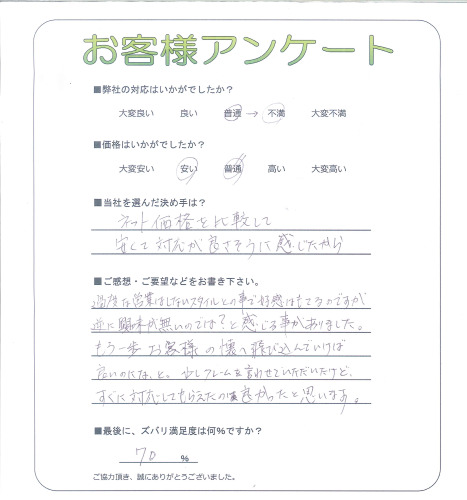 お客様アンケート
■弊社の対応はいかがでしたか?
大変良い 良い 普通 → 不満 大変不満
■価格はいかがでしたか?
大変安い 安い 普通 高い 大変高い
■当社を選んだ決め手は?
ネット価格を比較して
安くて対応が良さそうに感じたから
■ご感想・ご要望などをお書き下さい。
過度な営業はしないスタイルとの事で好感はもてるのですが
逆に興味が無いのでは?と感じる事がありました。
もう一歩お客様の懐へ飛び込んでいけば
良いのになと。少しクレームを言わせていただいたけど、
すぐに対応してもらえたのは良かったと思います。
■最後に、ズバリ満足度は何%ですか?
70 %
ご協力頂き、誠にありがとうございました。